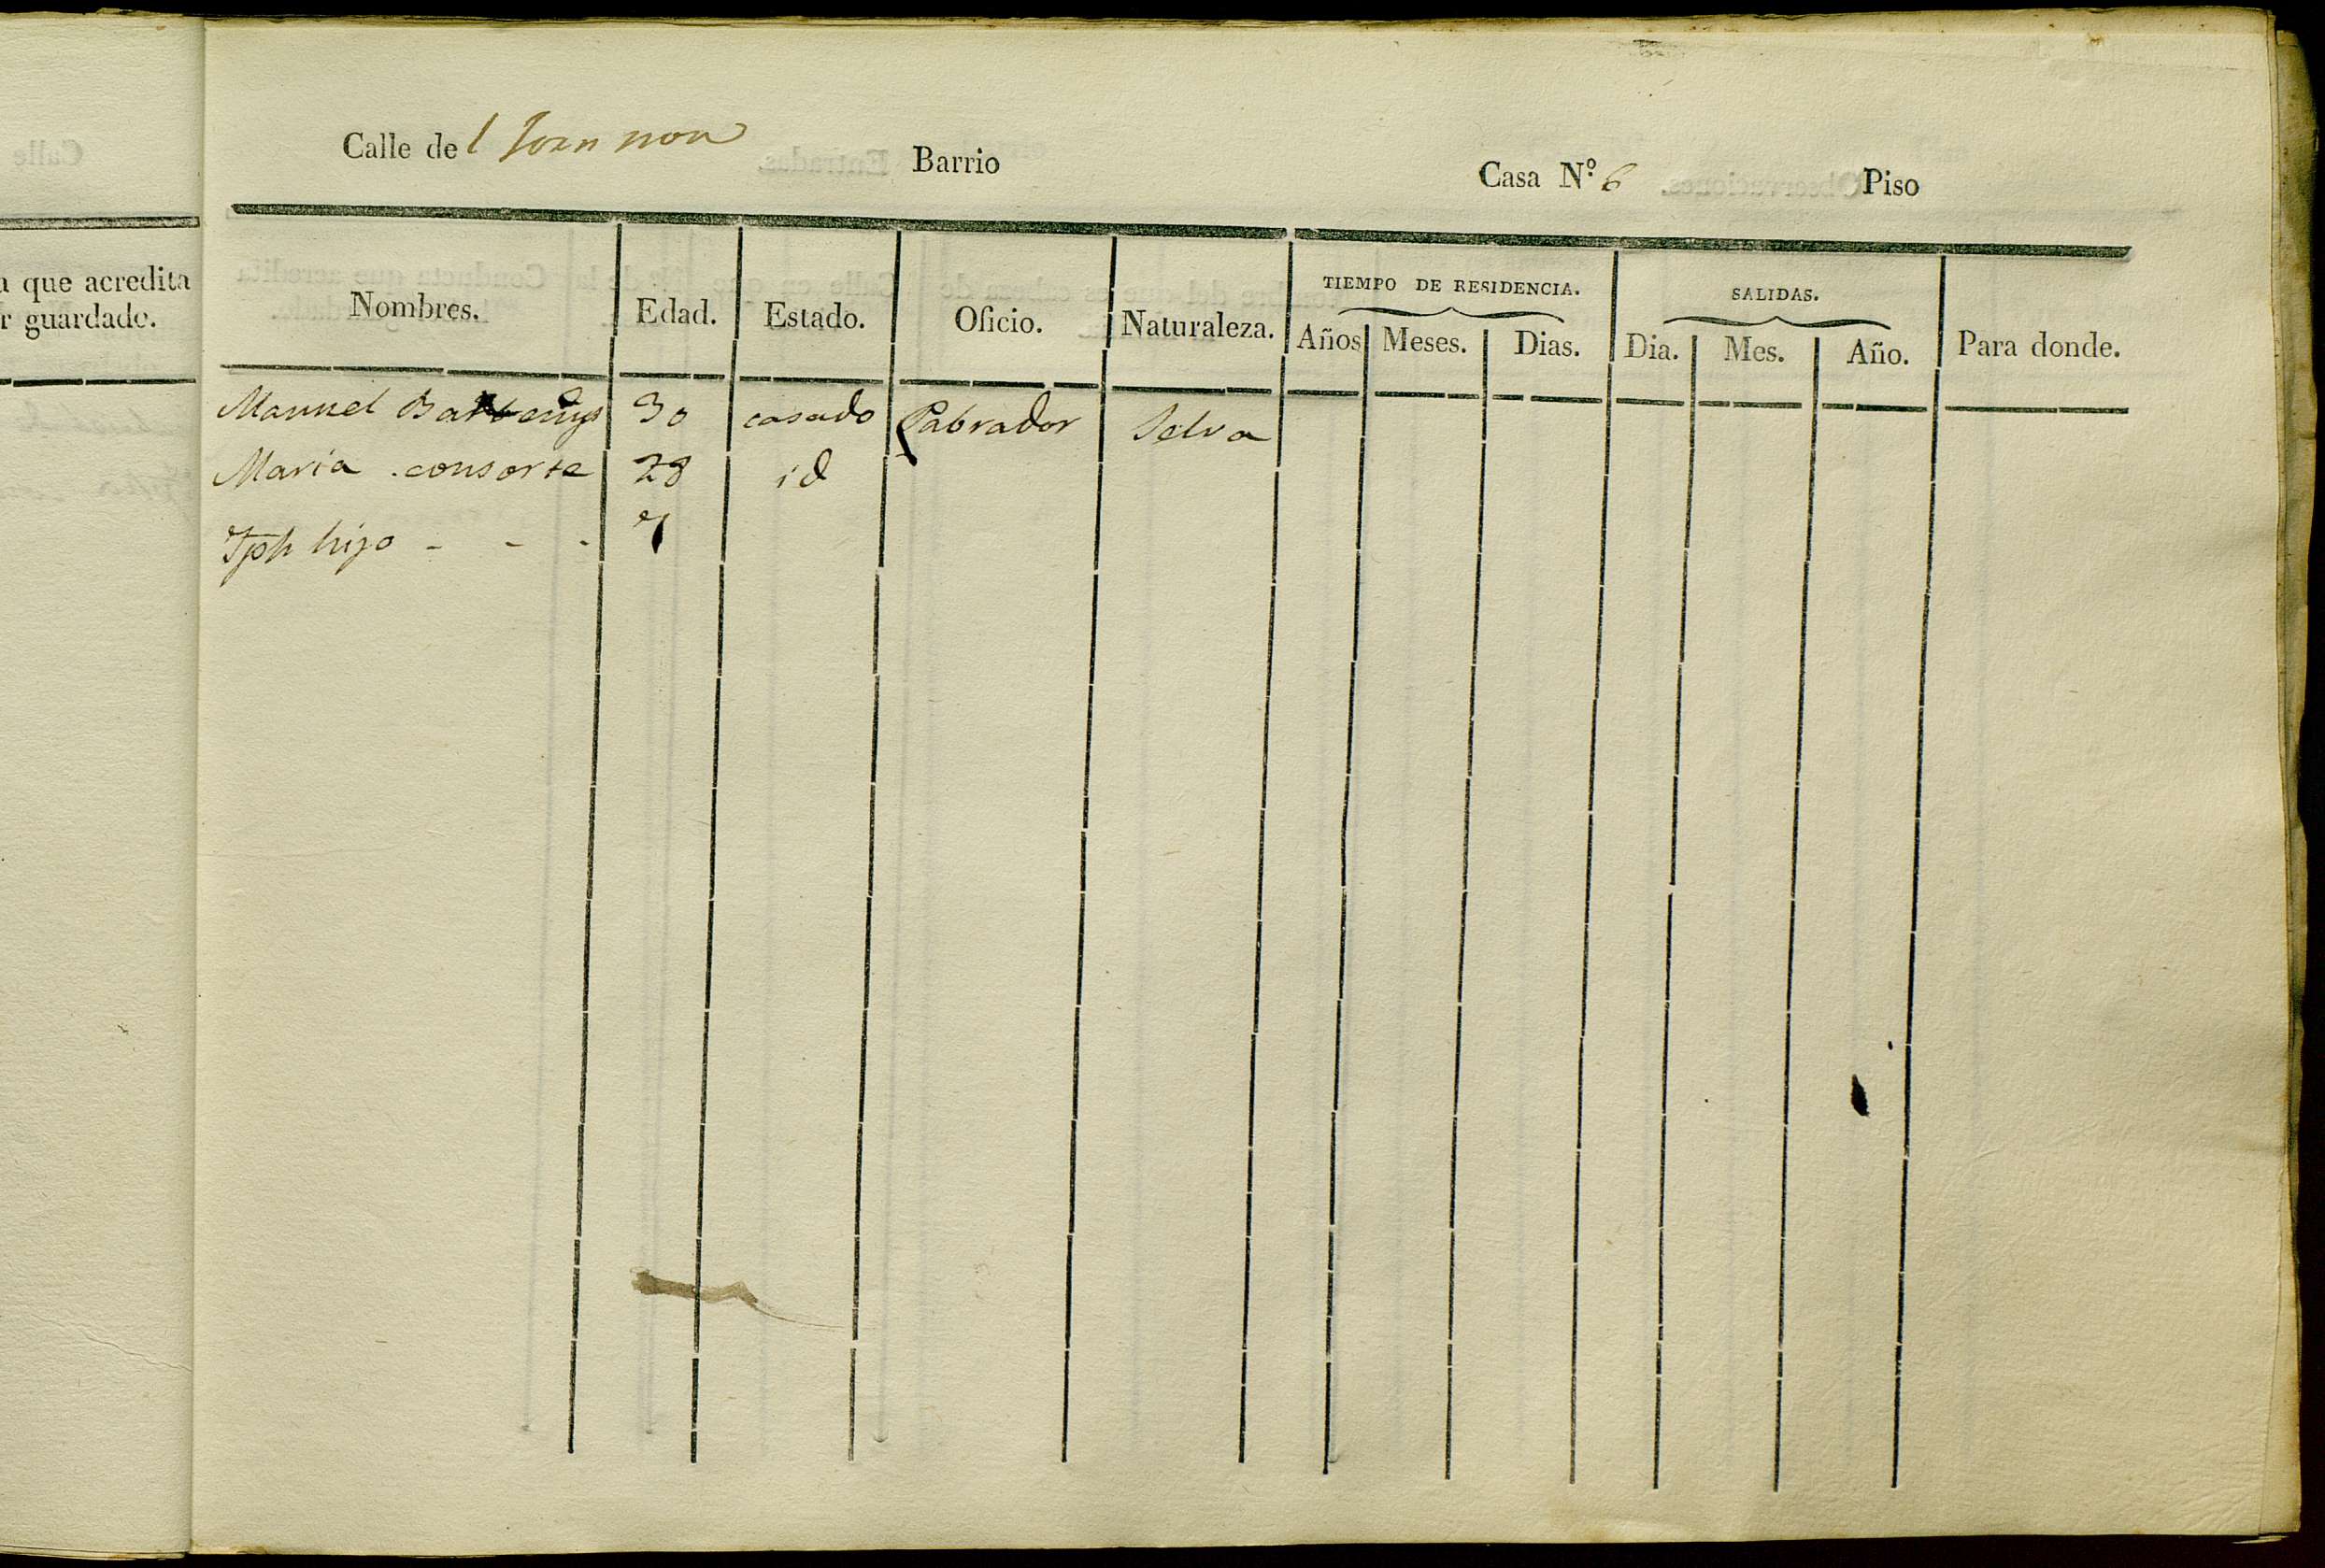 a que acredita
r guardado.
Calle del Forn nou Barrio Casa N.º 6 Piso
Nombres. Edad. Estado. Oficio. Naturaleza. TIEMPO DE RESIDENCIA. SALIDAS. Para donde.
Años Meses. Dias. Dia. Mes. Año.
Manuel 30 casado Labrador Selva
Maria consorte 28 id
Jph hijo - - - 7